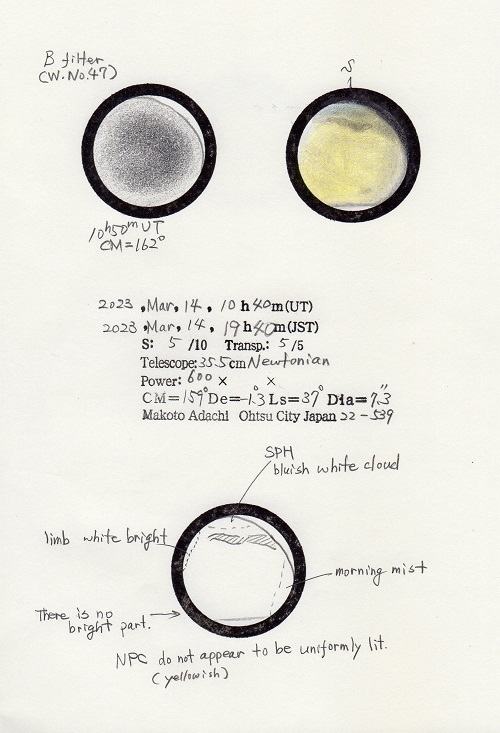 B filter
(W.No.47)
S
10h50m UT
CM=162°
2023, Mar, 14, 10h40m(UT)
2023, Mar, 14, 19h40m(JST)
S: 5 /10 Transp.: 5 /5
Telescope: 35.5cm Newtonian
Power: 600 × ×
CM=159° De=-1.3° Ls=37° Dia=7.3"
Makoto Adachi Ohtsu City Japan 22-539
SPH
bluish white cloud
limb white bright
morning mist
There is no
bright part.
NPC do not appear to be uniformly lit.
(yellowish)